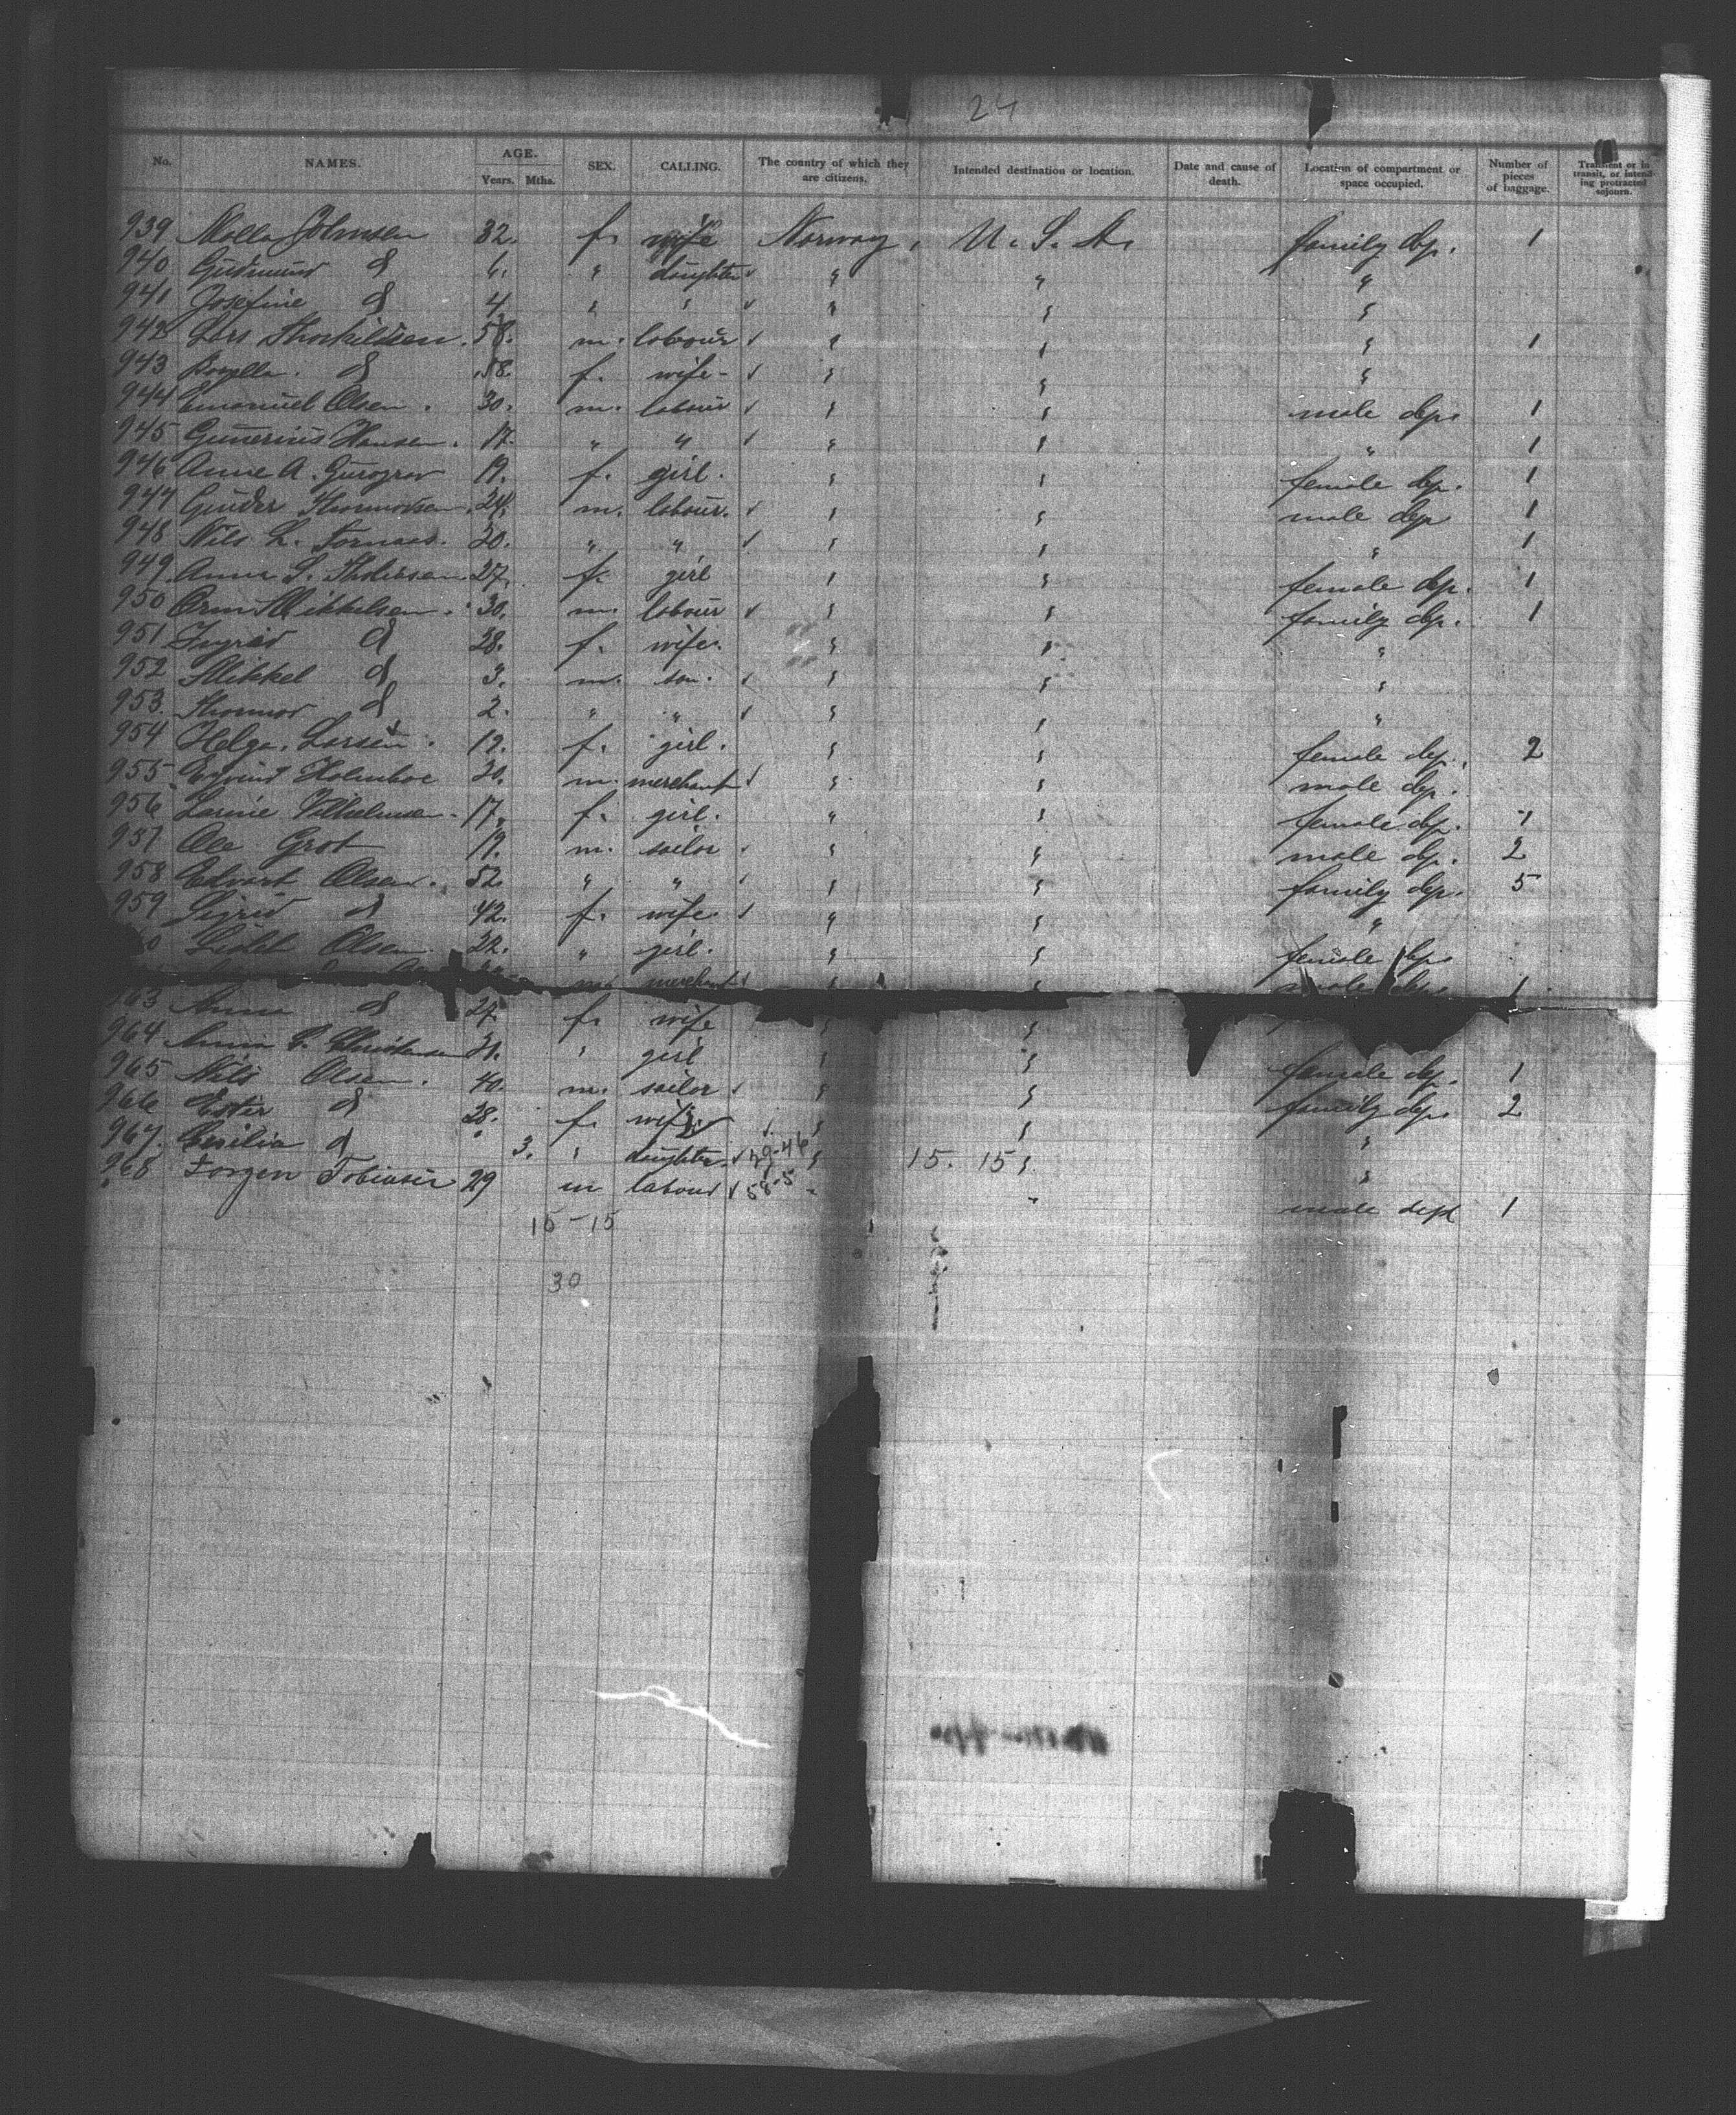 24
No. NAMES. AGE. Years. Mths. SEX. CALLING. The country of which they are citizens. Intended destination or location. Date and cause of death. Location of compartment or space occupied. Number of pieces of baggage. Transient or in transit, or intending protracted sojourn.
939 Johnsen 32. f. wife Norway, U. S. A. family dep. 1
940 Gudmund d 6. " daughter " " "
941 Josefine d 4. " " " " "
942 Lars Thorkildsen. 58. m. labour " " " 1
943 d 58. f. wife - " " "
944 Emanuel Olsen. 30. m. labour " " male dep. 1
945 Gunerius Hansen. 17. " " " " " 1
946 Anne A. 19. f. girl. " " female dep. 1
947 24. m. labour. " " male dep 1
948 Nils L. 20. " " " " " 1
949 Anna S. 27. f. girl " " female dep. 1
950 Orm Mikkelsen. 30. m. labour " " family dep. 1
951 Ingrid d 28. f. wife. " " "
952 Mikkel d 3. m. son. " " "
953. Thormod d 2. " " " " "
954 Helga Larsen. 19. f. girl. " " female dep. 2
955 Eyvind Holmboe 20. m. merchant " " male dep.
956 Vilhelmsen. 17. f. girl. " " female dep. 1
957 Ole Grot 19. m. sailor " " male dep. 2
958 Edvart Olsen. 52. " " " " family dep. 5
959 Sigrid d 42. f. wife. " " "
Olsen. 22. " girl. " " female dep.
m. merchant " " male dep. 1
963 Anna d 27 f. wife " "
964 Anna C. Christensen 21. " girl " " female dep. 1
965 Nils Olsen. 40. m. sailor " " family dep. 2
966 Ester d 28. f. wife " " "
967. d 3. " daughter. 29-46 " 15. 15 " "
968 Jorgen Tobiasen 29 m labour 58-5 " " male dept 1
15-15
30